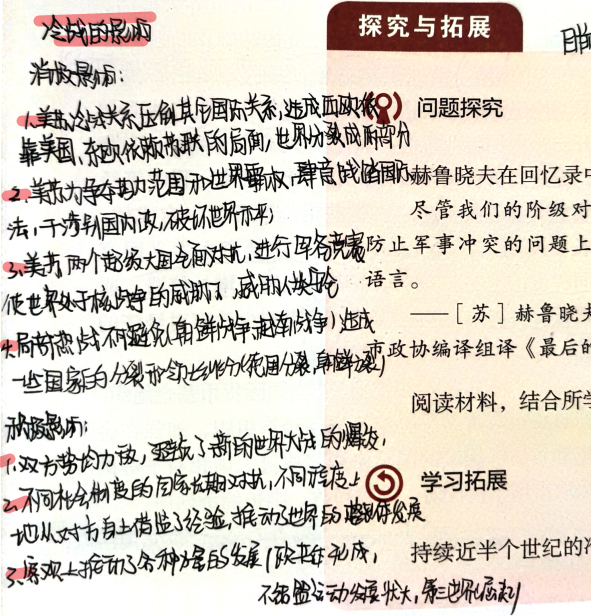 冷战的影响
消极影响：
1.美苏冷战关系压倒其它国际关系，造成西欧依
靠美国、东欧依附苏联的局面，世界分裂成两部分
2.美苏为争夺势力范围和世界霸权，肆意践踏国际
法，干涉别国内政，破坏世界和平；
3.美苏两个超级大国全面对抗，进行军备竞赛
使世界处于核战争的威胁下，威胁人类安全
4.局部热战不可避免(朝鲜战争、越南战争)造成
一些国家的分裂和领土划分(德国分裂、朝鲜分裂)
积极影响：
1.双方势均力敌，避免了新的世界大战的爆发，
2.不同社会制度的国家长期对抗，不同程度上
地从对方身上借鉴了经验，推动了世界的发展
3.客观上推动了各种力量的发展(欧共体形成，
不结盟运动发展壮大，第三世界崛起)
探究与拓展
问题探究
赫鲁晓夫在回忆录中
尽管我们的阶级对
防止军事冲突的问题上
语言。
——［苏］赫鲁晓夫
市政协编译组译《最后的
阅读材料，结合所学
学习拓展
持续近半个世纪的冷